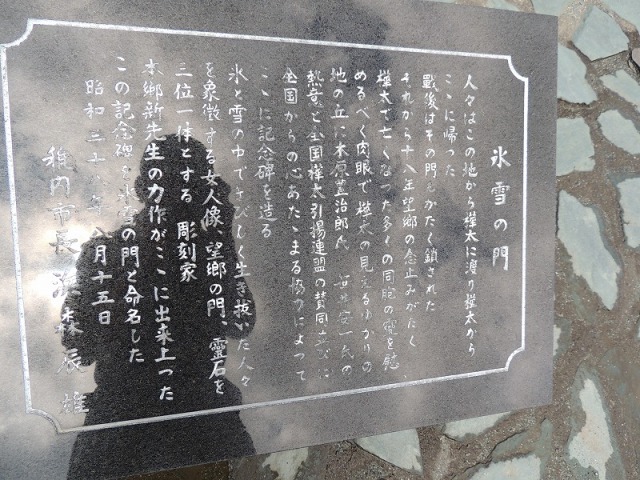 氷雪の門
人々はこの地から樺太に渡り樺太から
ここに帰った
戦後はその門もかたく鎖された
それから十八年望郷の念止みがたく
樺太で亡くなった多くの同胞の霊を慰
めるべく肉眼で樺太の見えるゆかりの
地の丘に木原豊治郎氏 笹井安一氏の
熱意と全国樺太引揚連盟の賛同並びに
全国からの心あたゝまる協力によって
ここに記念碑を造る
氷と雪の中できびしく生き抜いた人々
を象徴する女人像、望郷の門、霊石を
三位一体とする 彫刻家
本郷新先生の力作がここに出来上った
この記念碑を氷雪の門と命名した
昭和三十 年八月十五日
稚内市長 浜森辰雄